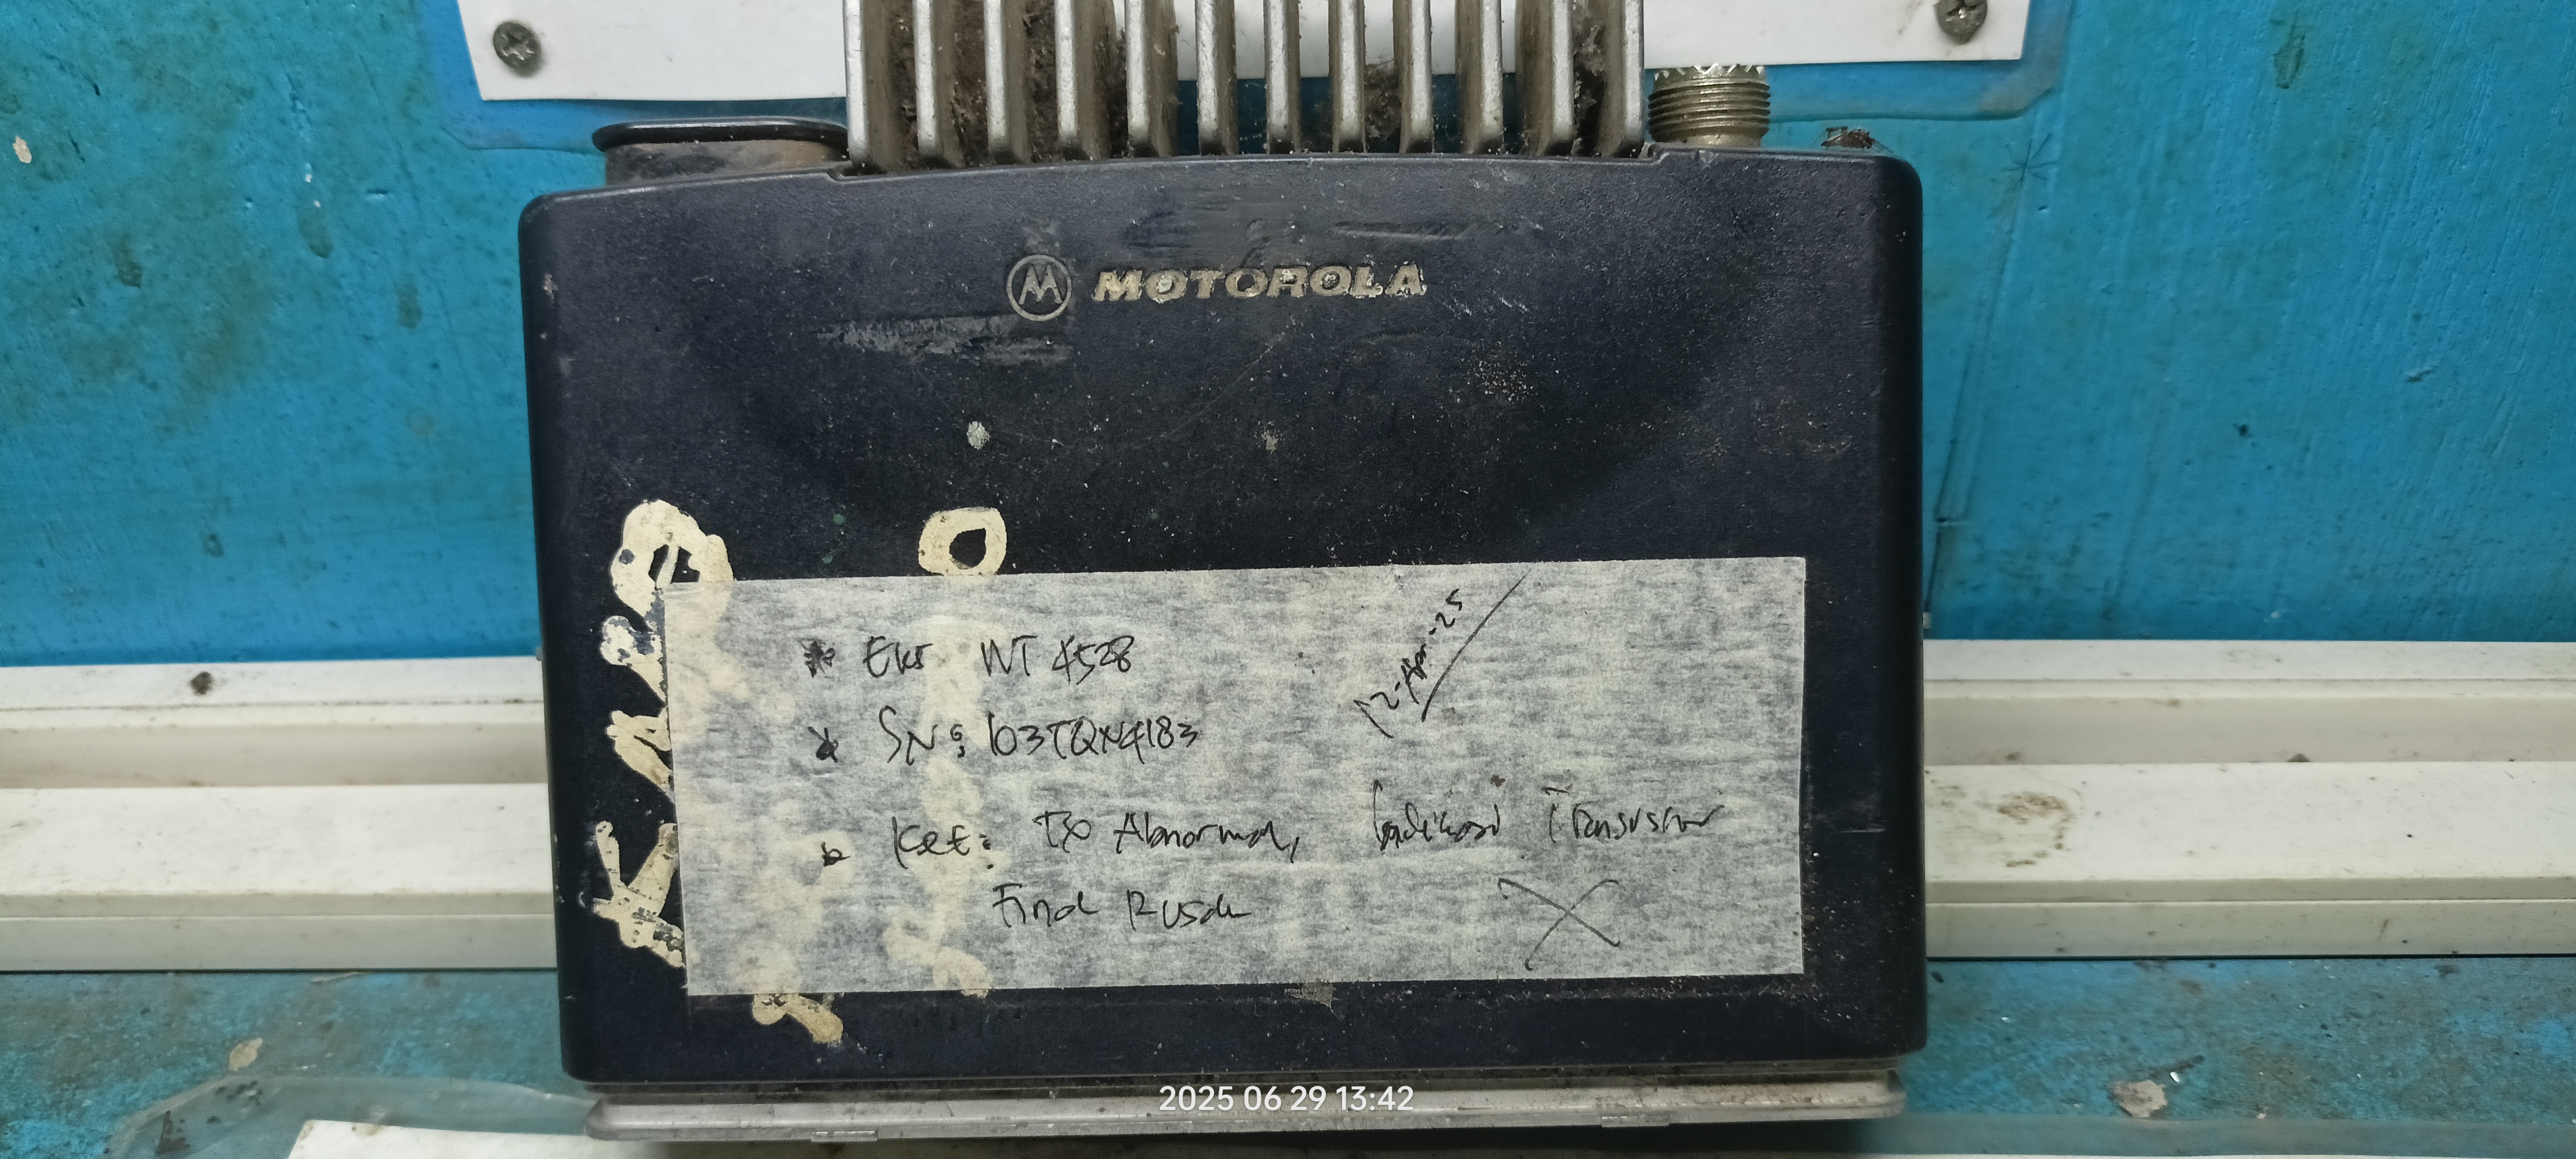 MOTOROLA
Eks WT 4528
12-Apr-25
SN: 103TQX4183
Ket: TX Abnormal, Indikasi Transistor
Final Rusak
X
2025 06 29 13:42